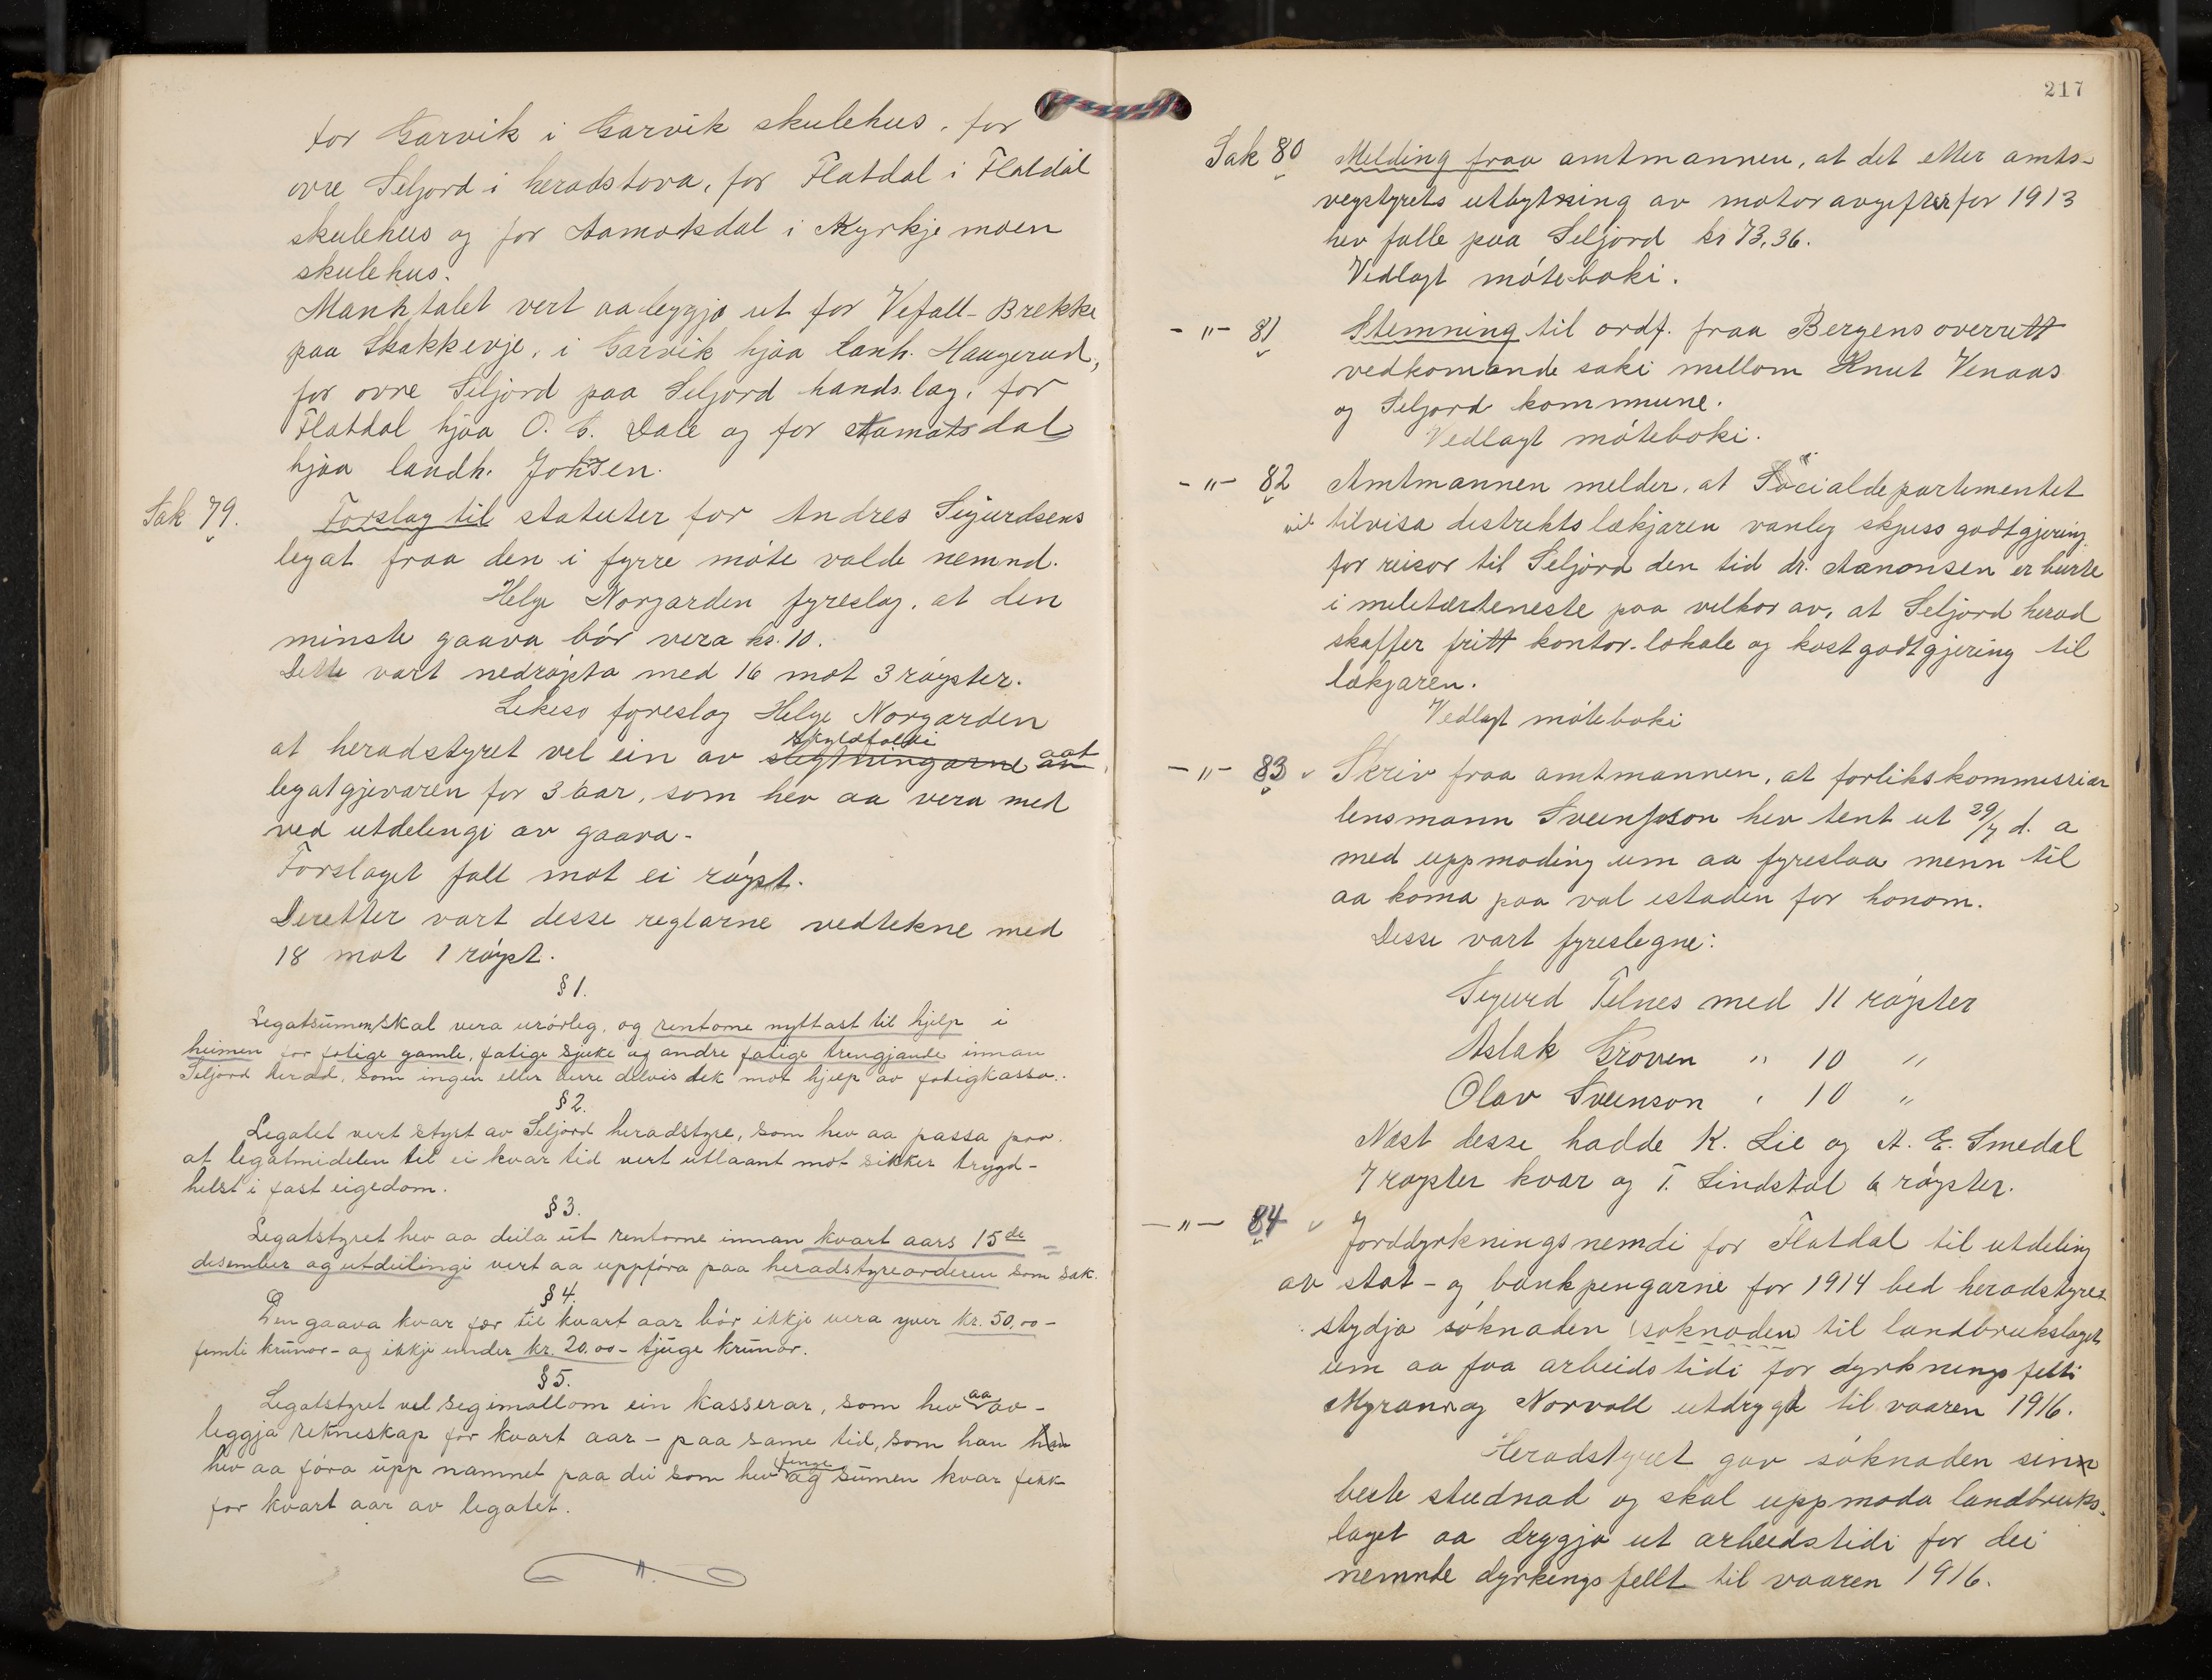 for Garvik i Garvik skulehus, for
ovre Seljord i heradstova, for Flatdal i Flatdal
skulehus og for Aamotsdal i Kyrkjemoen
skulehus.
Manntalet vert aa leggja ut for Vefall-Brekke
paa Skakkevje, i Garvik hjaa lanh. Haugerud,
for ovre Seljord paa Seljord handslag, for
Flatdal hjaa O. G. Dale og for Aamotsdal
hjaa landh. Johsen.
Sak 79. Forslag til statuter for Andres Sigurdsens
legat fraa den i fyrre møte valde nemnd.
Helge Norgarden fyreslog, at den
minste gaava bør vera kr. 10.
Dette vart nedrøysta med 16 mot 3 røyster.
Likeso fyreslog Helge Norgarden
skyldfolki aat
at heradstyret vel ein av slegtningarne av
legatgjevaren for 3 aar, som hev aa vera med
ved utdelingi av gaava.
Forslaget fall mot ei røyst.
Deretter vart desse reglarne vedtekne med
18 mot 1 røyst.
§ 1.
Legatsumen skal vera urørleg, og rentorne nyttast til hjelp i
heimen for fatige gamle, fatige sjuke og andre fatige trengjande innan
Seljord herad, som ingen eller berre delvis dek mot hjelp av fatigkassa.
§ 2.
Legatet vert styrt av Seljord heradstyre, som hev aa passa paa
at legatmidelen til ei kvar tid vert utlaant mot sikker trygd -
helst i fast eigedom.
§ 3.
Legatstyret hev aa deila ut rentorne innan kvart aars 15de
desember og utdeilingi vert aa uppføra paa heradstyreorderen som sak.
§ 4.
Den gaava kvar fær til kvart aar bør ikkje vera yver kr. 50,00 -
femti krunor - og ikkje under kr. 20.00 - tjuge krunor.
§ 5.
Legatstyret vel segimollom ein kasserar, som hev aa av-
leggja rekneskap for kvart aar - paa same tid, som han han
hev aa føra upp namnet paa dei som hev fenge og sumen kvar fekk
for kvart aar av legatet.
217
Sak 80 Melding fraa amtmannen, at det etter amts-
vegstyrets utbytning av motoravgifter for 1913
hev falle paa Seljord kr 73,36.
Vidlagt møteboki.
-"- 81 Stemning til ordf. fraa Bergens overrett
vedkomande saki mellom Knut Venaas
og Seljord kommune.
Vedlagt møteboki.
-"- 82 Amtmannen melder, at Socialdepartementet
vil tilvisa distriktslækjaren vanleg skyss godtgjering
for reisor til Seljord den tid dr. Aanonsen er burte
i militærteneste paa vilkor av, at Seljord herad
skaffer fritt kontor-lokale og kostgodtgjering til
lækjaren.
Vedlagt møteboki
-"- 83 Skriv fraa amtmannen, at forlikskommissiær
lensmann Sveinsson hev tent ut 29/7 d. a
med uppmoding um aa fyreslaa menn til
aa koma paa val istaden for honom.
Desse vart fyreslegne:
Sigurd Telnes med 11 røyster
Aslak Groven " 10 "
Olav Sveinson " 10 "
Næst desse hadde K. Lie og A. E. Smedal
7 røyster kvar og T. Lindstøl 6 røyster.
-"- 84 Jorddyrkningsnemdi for Flatdal til utdeling
av stat- og bankpengarne for 1914 bed heradstyret
stydja søknaden (søknaden) til landbrukslaget
um aa faa arbeidstidi for dyrkningsfelti
Myrane og Norvoll utdrygt til vaaren 1916.
Heradstyret gav søknaden sinn
beste studnad og skal uppmoda landbruks-
laget aa drygja ut arbeidstidi for dei
nemnde dyrkingsfellt til vaaren 1916.